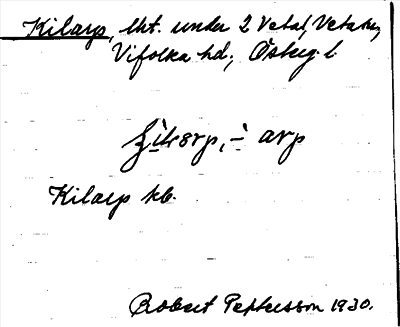 Kilarp, lht. under 2 Vetal, Vetaby,
Vifolka hd., Österg. l.
-arp
Kilarp kb.
Robert Pettersson 1930.